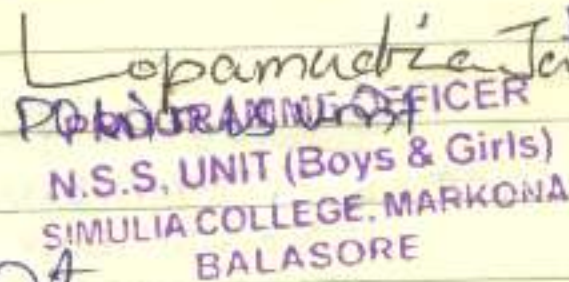 Lopamudra
PROGRAMME OFFICER
N.S.S. UNIT (Boys & Girls)
SIMULIA COLLEGE. MARKONA
BALASORE